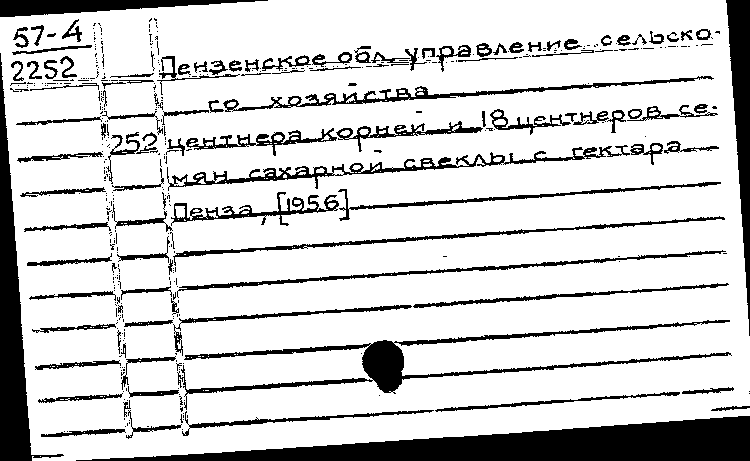 57-4
2252
Пензенское обл. управление сельско-
го хозяйства
252 центнера корней и 18 центнеров се-
мян сахарной свеклы с гектара
Пенза, [1956]